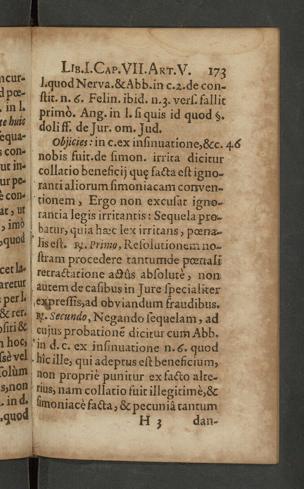 LIB.I.CAP.VII.ART.V. 173
l.quod Nerva.&Abb.in c.2.de con-
stit. n. 6. Felin. ibid. n.3. vers. fallit
primò. Ang. in l. si quis id quod §.
doli ff. de Jur. om. Jud.
Objicies: in c.ex insinuatione,&c. 46
nobis fuit.de simon. irrita dicitur
collatio beneficij quę facta est igno-
ranti aliorum simoniacam conven-
tionem, Ergo non excusat igno-
rantia legis irritantis: Sequela pro-
batur, quia hæc lex irritans, pœna-
lis est. ℞. Primo, Resolutionem no-
stram procedere tantum de pœnasi
retractatione actûs absolutè, non
autem de casibus in Jure specialiter
expressis, ad obviandum fraudibus.
℞. Secundo, Negando sequelam, ad
cujus probationẽ dicitur cum Abb.
in d. c. ex insinuatione n. 6. quod
hic ille, qui adeptus est beneficium,
non propriè punitur ex facto alte-
rius, nam collatio fuit illegitimè, &
simoniacè facta, & pecuniâ tantum
H 3 dan-
ncur-
d pœ-
. in l.
te huic
equa-
s con-
ut in-
ur pe-
è con-
at, ut
, imò
,quod
cet la-
aretur
s per l.
& rer.
ositi &
n hoc,
ssè vel
solùm
s, non
. in d.
.quod